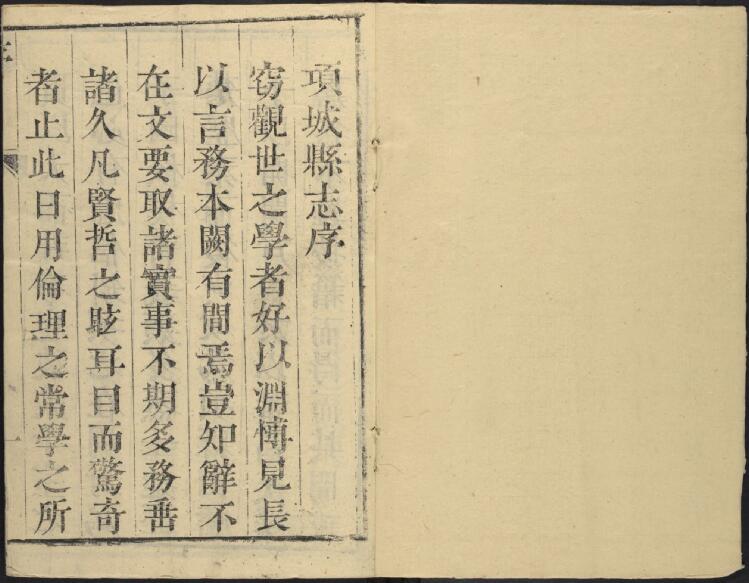 項城縣志序
窃觀世之學者好以淵博見長
以言務本闕有間焉豈知辭不
在文要取諸實事不期多務垂
諸久凡賢哲之駭耳目而驚奇
者止此日用倫理之常學之所